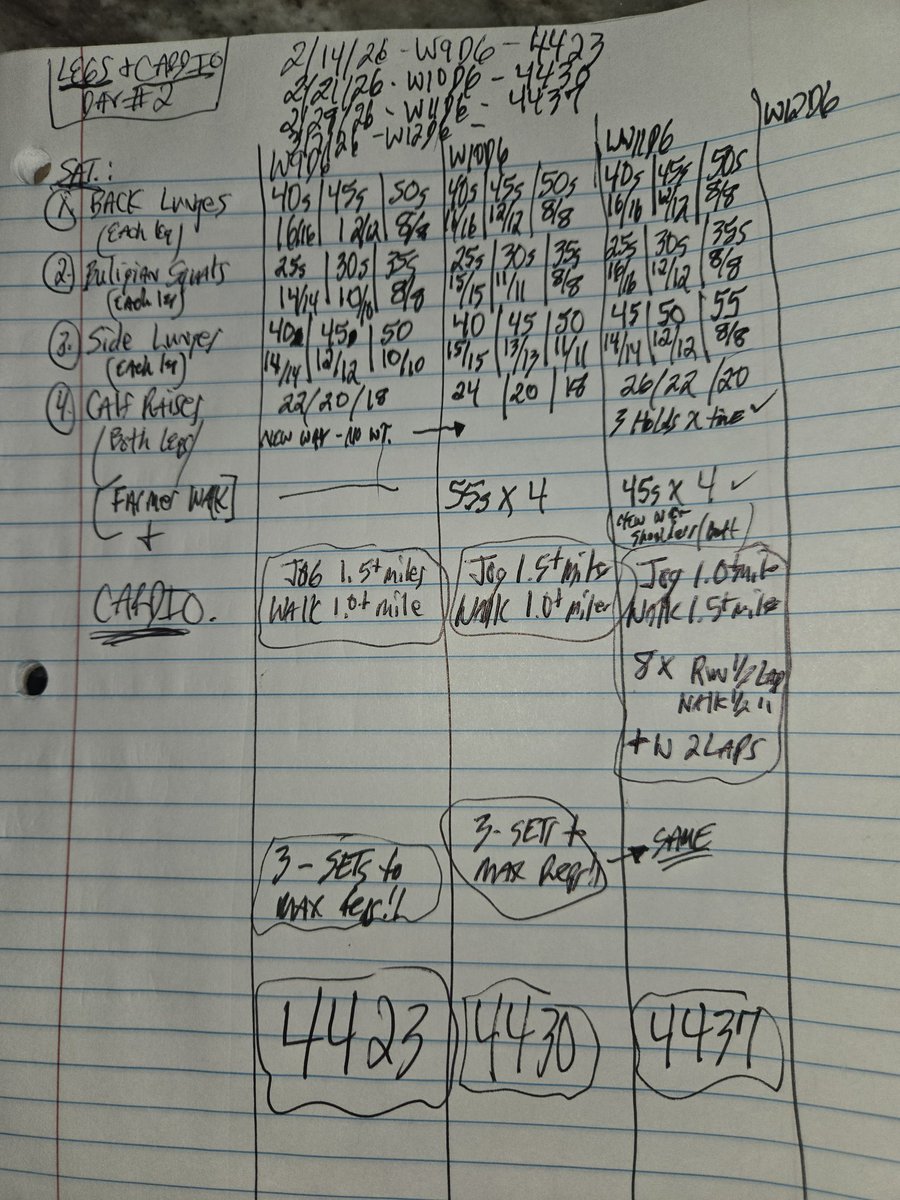 LEGS & CARDIO
DAY #2
2/14/26 - W9D6 - 4423
2/21/26 - W10D6 - 4430
2/29/26 - W11D6 - 4437
- W12D6 -
SAT.:
W9D6 W10D6 W11D6 W12D6
1. BACK Lunges 40s | 45s | 50s 40s | 45s | 50s 40s | 45s | 50s
(EAch leg) 16/16 | 12/12 | 8/8 16/16 | 12/12 | 8/8 16/16 | 12/12 | 8/8
2. Bulgian Squats 25s | 30s | 35s 25s | 30s | 35s 25s | 30s | 35s
(EAch leg) 14/14 | 10/10 | 8/8 15/15 | 11/11 | 8/8 16/16 | 12/12 | 8/8
3. Side Lunges 40 | 45 | 50 40 | 45 | 50 45 | 50 | 55
(EAch leg) 14/14 | 12/12 | 10/10 15/15 | 13/13 | 11/11 14/14 | 12/12 | 8/8
4. CAlf RAises 22/20/18 24 | 20 | 18 26/22/20
(Both Legs) NEW WAY - NO WT. → 3 Holds X ✓
[FArmer WAlk] — 55s X 4 45s X 4 ✓
+ NEW
shoulders/
CARDIO.
JOG 1.5+ miles JOg 1.5+ miles JOg 1.0+ mile
WALK 1.0+ mile WAlk 1.0+ miler WAlk 1.5+ mile
8X RUN 1/2 LAp
WAlk 1/2 "
+ W 2 LAPS
3 - SETS to 3 - SETS to → SAME
MAX Reps!! MAX Reps!!
4423 4430 4437